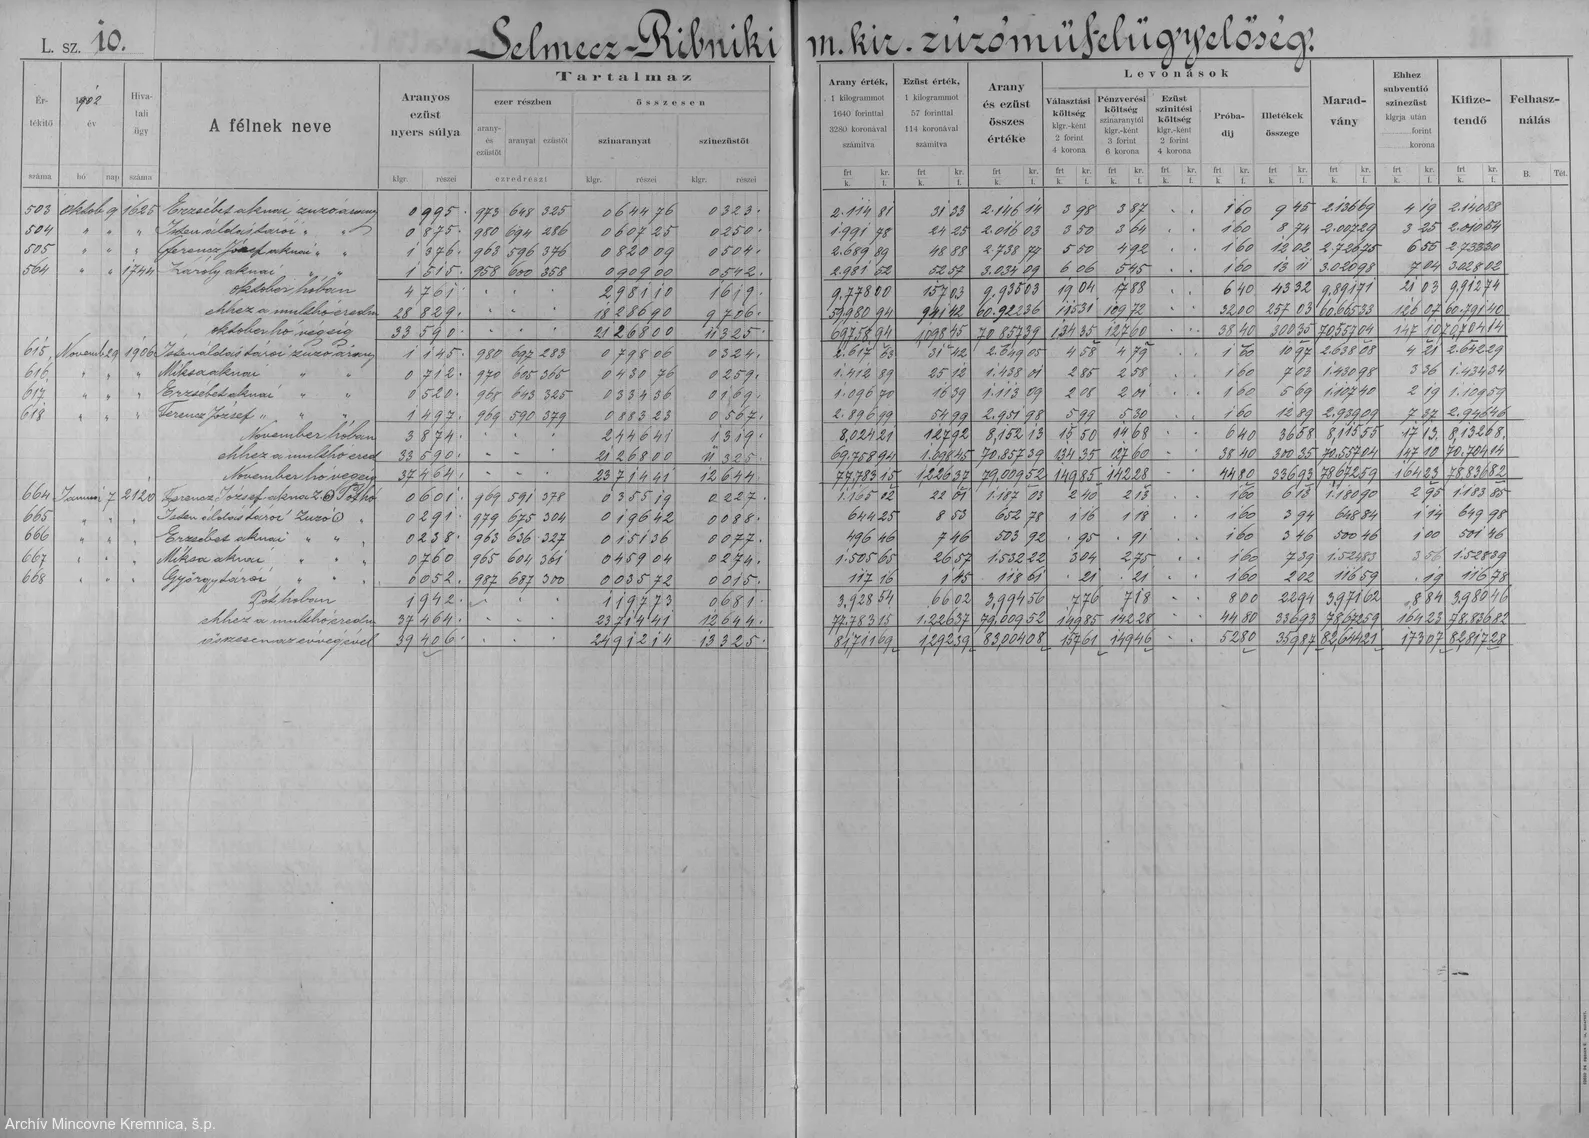 L. sz. 10.
Selmecz-Ribniki m. kir. zúzómüfelügyelőség.
Értékitő száma
1902 év
hó
nap
Hivatali ügy száma
A félnek neve
Aranyos ezüst nyers súlya
klgr. részei
Tartalmaz
ezer részben
arany- és ezüstöt
aranyat
ezüstöt
ezredrészt
összesen
szinaranyat
klgr. részei
szinezüstöt
klgr. részei
Arany érték, 1 kilogrammot 1640 forinttal 3280 koronával számitva
Ezüst érték, 1 kilogrammot 57 forinttal 114 koronával számitva
Arany és ezüst összes értéke
Levonások
Választási költség klgr.-ként 2 forint 4 korona
Pénzverési költség szinaranytól klgr.-ként 3 forint 6 korona
Ezüst szinitési költség klgr.-ként 2 forint 4 korona
Próbadij
Illetékek összege
Maradvány
Ehhez subventió szinezüst klgrja után forint korona
Kifizetendő
Felhasználás
frt k. kr. f.
B. Tét.
503 Oktob 9 1625 Erzsébet aknai zuzóarany 0 995 973 648 325 0 644 76 0 323 2.114 81 31 33 2.146 14 3 98 3 87 1 60 9 45 2.136 69 4 19 2.140 88
504 " " " Istenáldás tárói " " 0 875 980 694 286 0 607 25 0 250 1.991 78 24 25 2.016 03 3 50 3 64 1 60 8 74 2.007 29 3 25 2.010 54
505 " " " Ferencz József aknai " " 1 376 963 596 376 0 820 09 0 504 2.689 89 48 88 2.738 77 5 50 4 92 1 60 12 02 2.726 75 6 55 2.733 30
564 " " 1744 Károly aknai " " 1 515 958 600 358 0 909 00 0 542 2.981 52 52 57 3.034 09 6 06 5 45 1 60 13 11 3.020 98 7 04 3.028 02
október hóban 4 761 2 981 10 1 619 9.778 00 157 03 9.935 03 19 04 17 88 6 40 43 32 9.891 71 21 03 9.912 74
ehhez a multhó eredm 28 829 18 286 90 9 706 59.980 94 941 42 60.922 36 115 31 109 72 32 00 257 03 60.665 33 126 07 60.791 40
oktober hó végéig 33 590 21 268 00 11 325 69.758 94 1.098 45 70.857 39 134 35 127 60 38 40 300 35 70.557 04 147 10 70.704 14
615 Novemb 29 1906 Istenáldás tárói zuzó arany 1 145 980 697 283 0 798 06 0 324 2.617 63 31 42 2.649 05 4 58 4 79 1 60 10 97 2.638 08 4 21 2.642 29
616 " " " Miksa aknai " " 0 712 970 605 365 0 430 76 0 259 1.412 89 25 12 1.438 01 2 85 2 58 1 60 7 03 1.430 98 3 36 1.434 34
617 " " " Erzsébet aknai " " 0 520 968 643 325 0 334 36 0 169 1.096 70 16 39 1.113 09 2 08 2 01 1 60 5 69 1.107 40 2 19 1.109 59
618 " " " Ferencz József " " " 1 497 969 590 379 0 883 23 0 567 2.896 99 54 99 2.951 98 5 99 5 30 1 60 12 89 2.939 09 7 37 2.946 46
November hóban 3 874 2 446 41 1 319 8.024 21 127 92 8.152 13 15 50 14 68 6 40 36 58 8.115 55 17 13 8.132 68
ehhez a multhó ered 33 590 21 268 00 11 325 69.758 94 1.098 45 70.857 39 134 35 127 60 38 40 300 35 70.557 04 147 10 70.704 14
November hó végéig 37 464 23 714 41 12 644 77.783 15 1.226 37 79.009 52 149 85 142 28 44 80 336 93 78.672 59 164 23 78.836 82
664 Januar 7 2120 Ferencz József aknai Z ⊙ Póthó 0 601 969 591 378 0 355 19 0 227 1.165 02 22 01 1.187 03 2 40 2 13 1 60 6 13 1.180 90 2 95 1.183 85
665 " " " Isten áldás tárói Zuzó ⊙ " 0 291 979 675 304 0 196 42 0 088 644 25 8 53 652 78 1 16 1 18 1 60 3 94 648 84 1 14 649 98
666 " " " Erzsébet aknai " " " 0 238 963 636 327 0 151 36 0 077 496 46 7 46 503 92 95 91 1 60 3 46 500 46 1 00 501 46
667 " " " Miksa aknai " " 0 760 965 604 361 0 459 04 0 274 1.505 65 26 57 1.532 22 3 04 2 75 1 60 7 39 1.524 83 3 56 1.528 39
668 " " " György tárói " " " 0 052 987 687 300 0 035 72 0 015 117 16 1 45 118 61 21 21 1 60 2 02 116 59 19 116 78
Pót hóban 1 942 1 197 73 0 681 3.928 54 66 02 3.994 56 7 76 7 18 8 00 22 94 3.971 62 8 84 3.980 46
ehhez a multhó eredm 37 464 23 714 41 12 644 77.783 15 1.226 37 79.009 52 149 85 142 28 44 80 336 93 78.672 59 164 23 78.836 82
összesen az év végével 39 406 24 912 14 13 325 81.711 69 1.292 39 83.004 08 157 61 149 46 52 80 359 87 82.644 21 173 07 82.817 28
Archív Mincovne Kremnica, š.p.